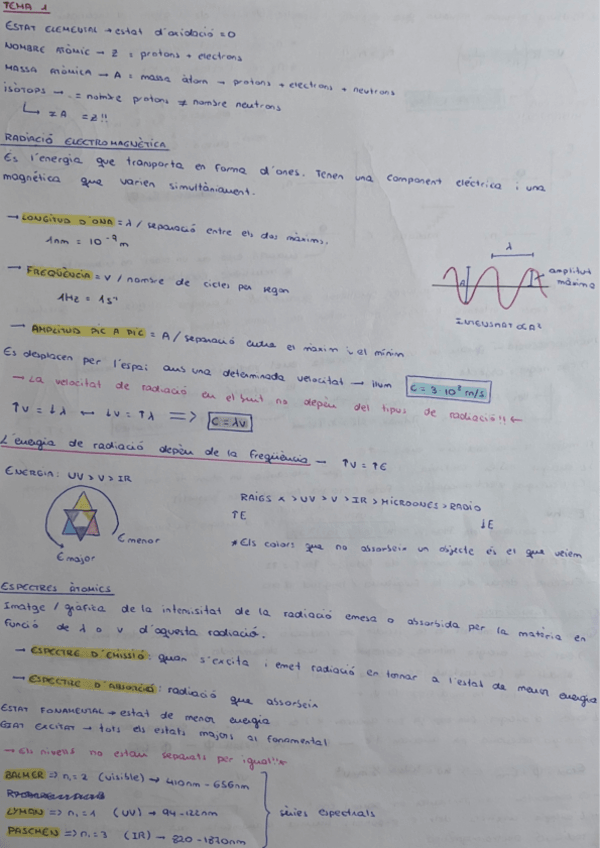 TEMA 1
ESTAT ELEMENTAL → estat d'oxidació = 0
NOMBRE ATÒMIC → Z = protons + electrons
MASSA ATÒMICA → A = massa àtom → protons + electrons + neutrons
ISÒTOPS → = nombre protons ≠ nombre neutrons
↳ ≠ A = Z!!
RADIACIÓ ELECTROMAGNÈTICA
És l'energia que transporta en forma d'ones. Tenen una component elèctrica i una
magnètica que varien simultàniament.
→ LONGITUD D'ONA = λ / separació entre els dos màxims.
1nm = 10⁻⁹ m
λ
→ FREQÜÈNCIA = ν / nombre de cicles per segon
amplitud
màxima
A
1Hz = 1s⁻¹
INTENSITAT ∝ A²
→ AMPLITUD PIC A PIC = A / separació entre el màxim i el mínim
Es desplacen per l'espai amb una determinada velocitat → llum C = 3·10⁸ m/s
→ La velocitat de radiació en el buit no depèn del tipus de radiació!! ←
↑ν = ↓λ ↔ ↓ν = ↑λ => C = λν
L'energia de radiació depèn de la freqüència → ↑ν = ↑E
ENERGIA: UV > V > IR
RAIGS X > UV > V > IR > MICROONES > RADIO
↑E ↓E
E menor
E major
* Els colors que no absorbeix un objecte és el que veiem
ESPECTRES ATÒMICS
Imatge / gràfica de la intensitat de la radiació emesa o absorbida per la matèria en
funció de λ o ν d'aquesta radiació.
→ ESPECTRE D'EMISSIÓ: quan s'excita i emet radiació en tornar a l'estat de menor energia
→ ESPECTRE D'ABSORCIÓ: radiació que absorbeix
ESTAT FONAMENTAL → estat de menor energia
ESTAT EXCITAT → tots els estats majors al fonamental
→ Els nivells no estan separats per igual!! ←
BALMER => n₁ = 2 (visible) → 410nm - 656nm
LYMAN => n₁ = 1 (UV) → 94 - 122nm
sèries espectrals
PASCHEN => n₁ = 3 (IR) → 820 - 1870nm